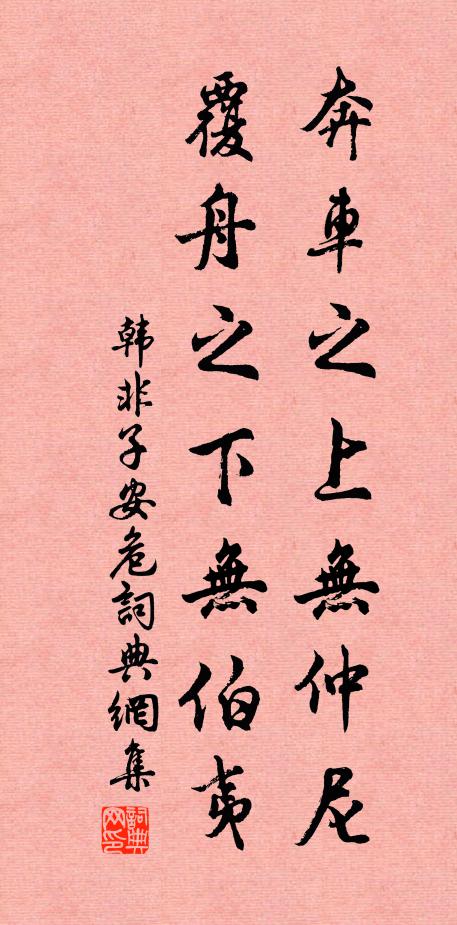 奔車之上無仲尼
覆舟之下無伯夷
韩非子安危詞典網集
詞典网印